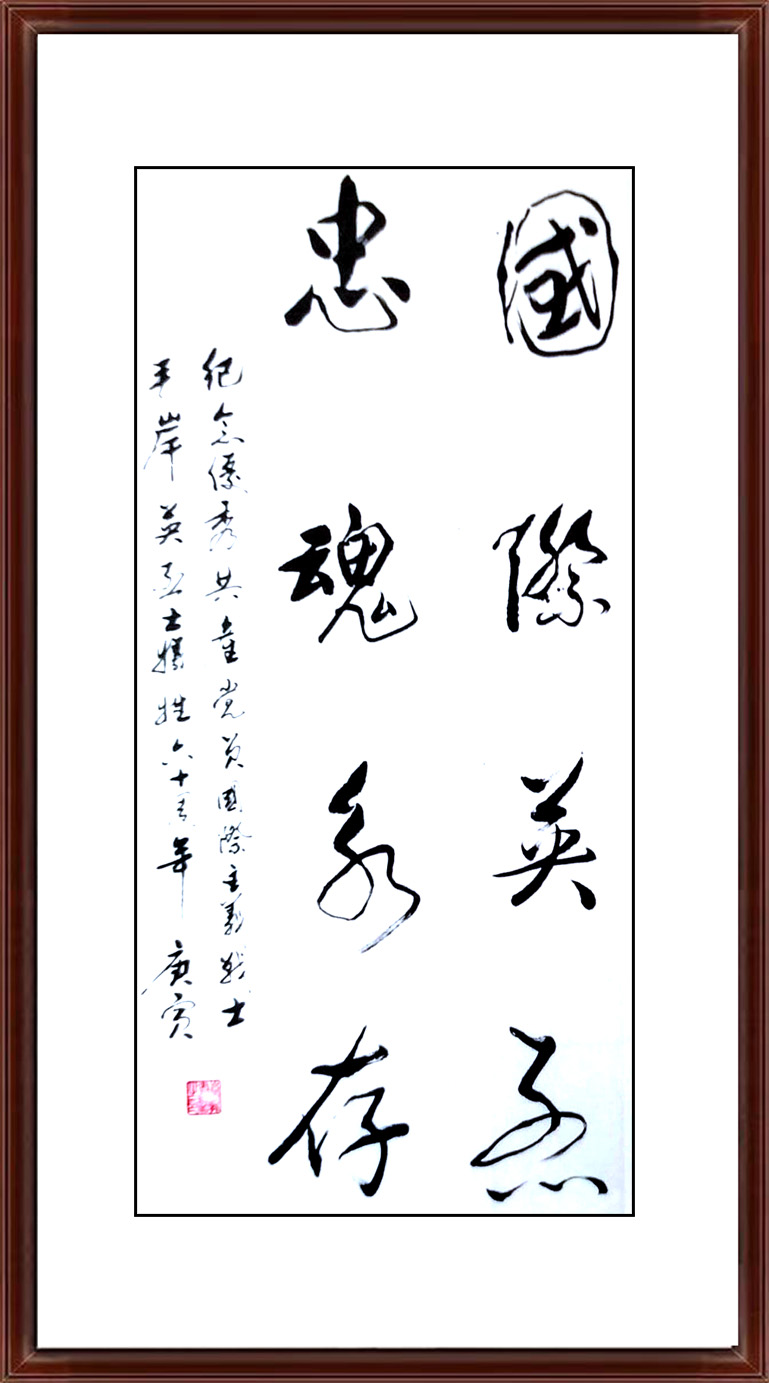 國際英烈
忠魂永存
纪念優秀共產党员國際主義戰士
毛岸英烈士犧牲六十周年 庚寅